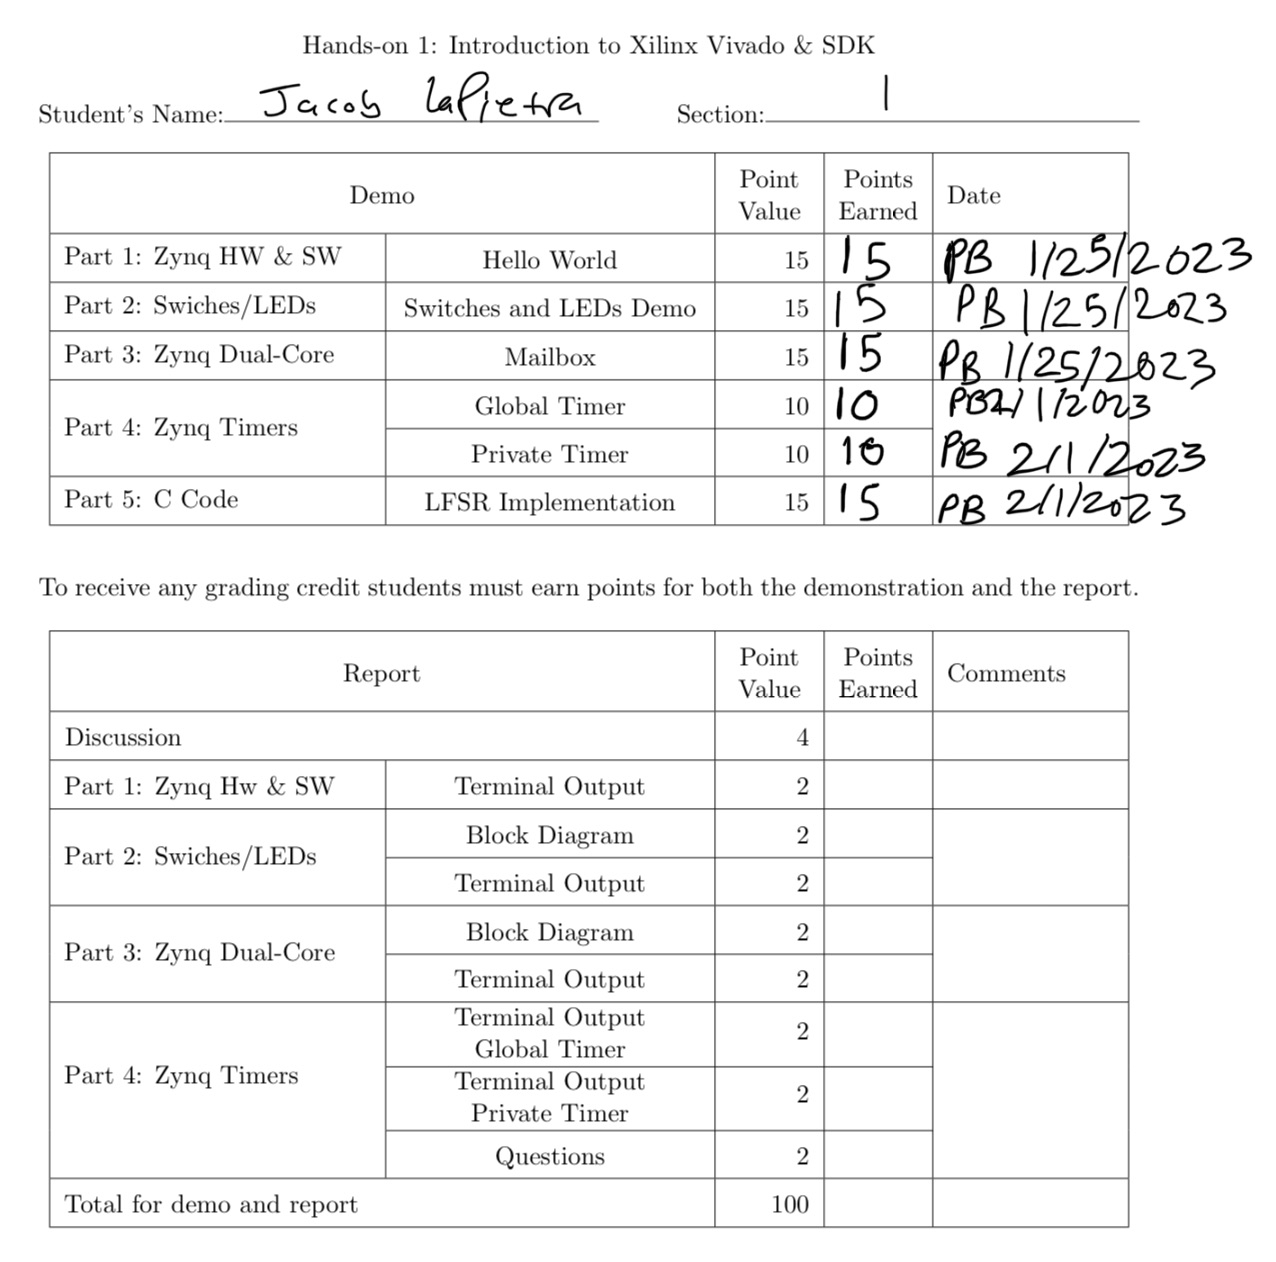 Hands-on 1: Introduction to Xilinx Vivado & SDK
Student's Name: Jacob LaPietra Section: 1
Demo Point Value Points Earned Date
Part 1: Zynq HW & SW Hello World 15 15 PB 1/25/2023
Part 2: Swiches/LEDs Switches and LEDs Demo 15 15 PB 1/25/2023
Part 3: Zynq Dual-Core Mailbox 15 15 PB 1/25/2023
Part 4: Zynq Timers Global Timer 10 10 PB 2/1/2023
Private Timer 10 10 PB 2/1/2023
Part 5: C Code LFSR Implementation 15 15 PB 2/1/2023
To receive any grading credit students must earn points for both the demonstration and the report.
Report Point Value Points Earned Comments
Discussion 4
Part 1: Zynq Hw & SW Terminal Output 2
Part 2: Swiches/LEDs Block Diagram 2
Terminal Output 2
Part 3: Zynq Dual-Core Block Diagram 2
Terminal Output 2
Part 4: Zynq Timers Terminal Output Global Timer 2
Terminal Output Private Timer 2
Questions 2
Total for demo and report 100